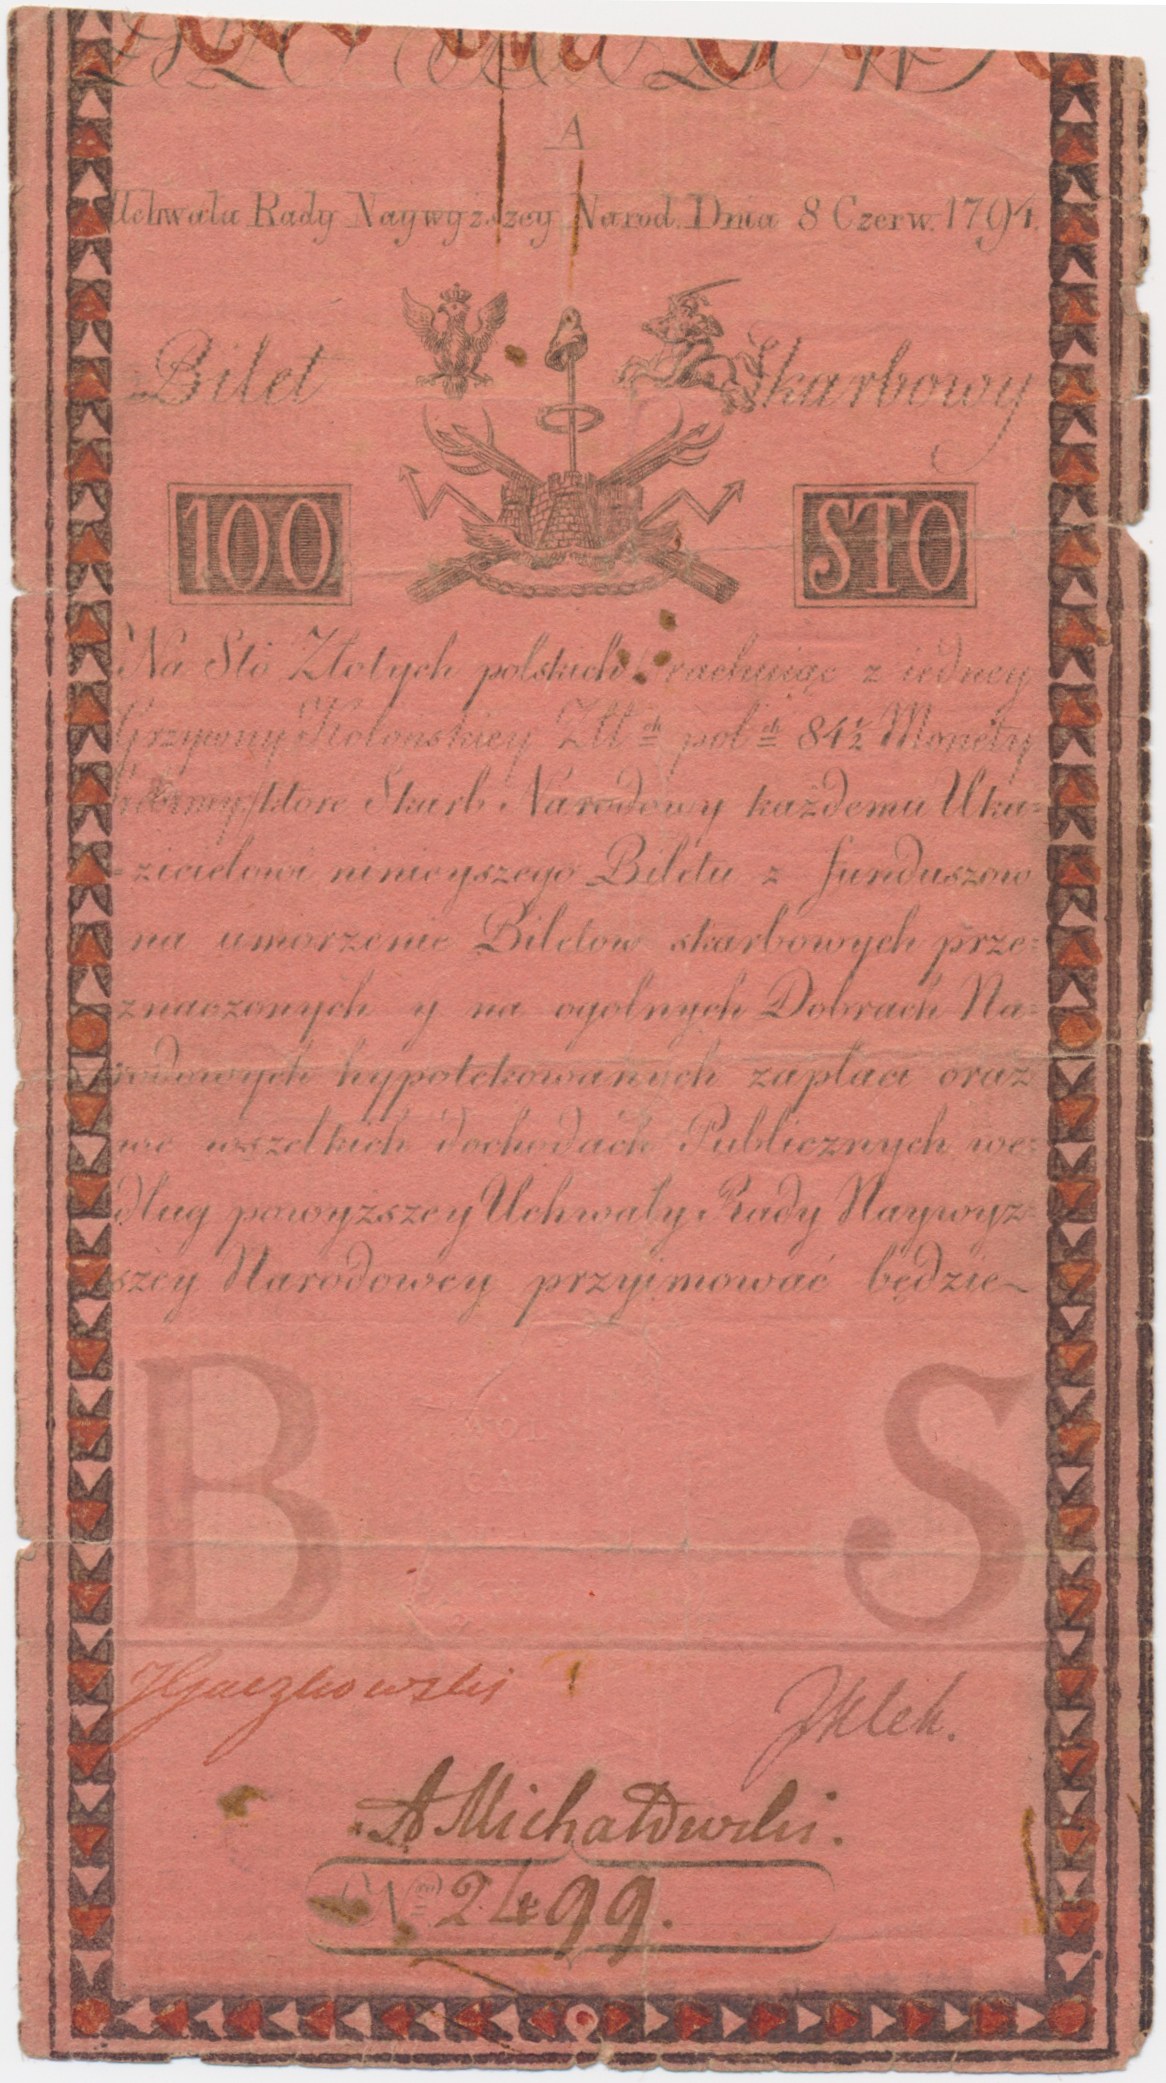 A
Uchwała Rady Naywyższey Narod. Dnia 8 Czerw. 1794.
Bilet Skarbowy
100 STO
Na Sto Złotych polskich rachuiąc z iedney
Grzywny Kolońskiey Złł ch pol ch 84½ Monety
ktore Skarb Narodowy każdemu Uka=
=zicielowi ninieyszego Biletu z funduszow
na umorzenie Biletow skarbowych prze=
znaczonych y na ogolnych Dobrach Na=
rodowych hypotekowanych zapłaci oraz
we wszelkich dochodach Publicznych we=
dług powyższey Uchwały Rady Naywyż=
szey Narodowey przyimować będzie
B S
JGaczkowski JKlek.
A Michałowski.
No 2499.